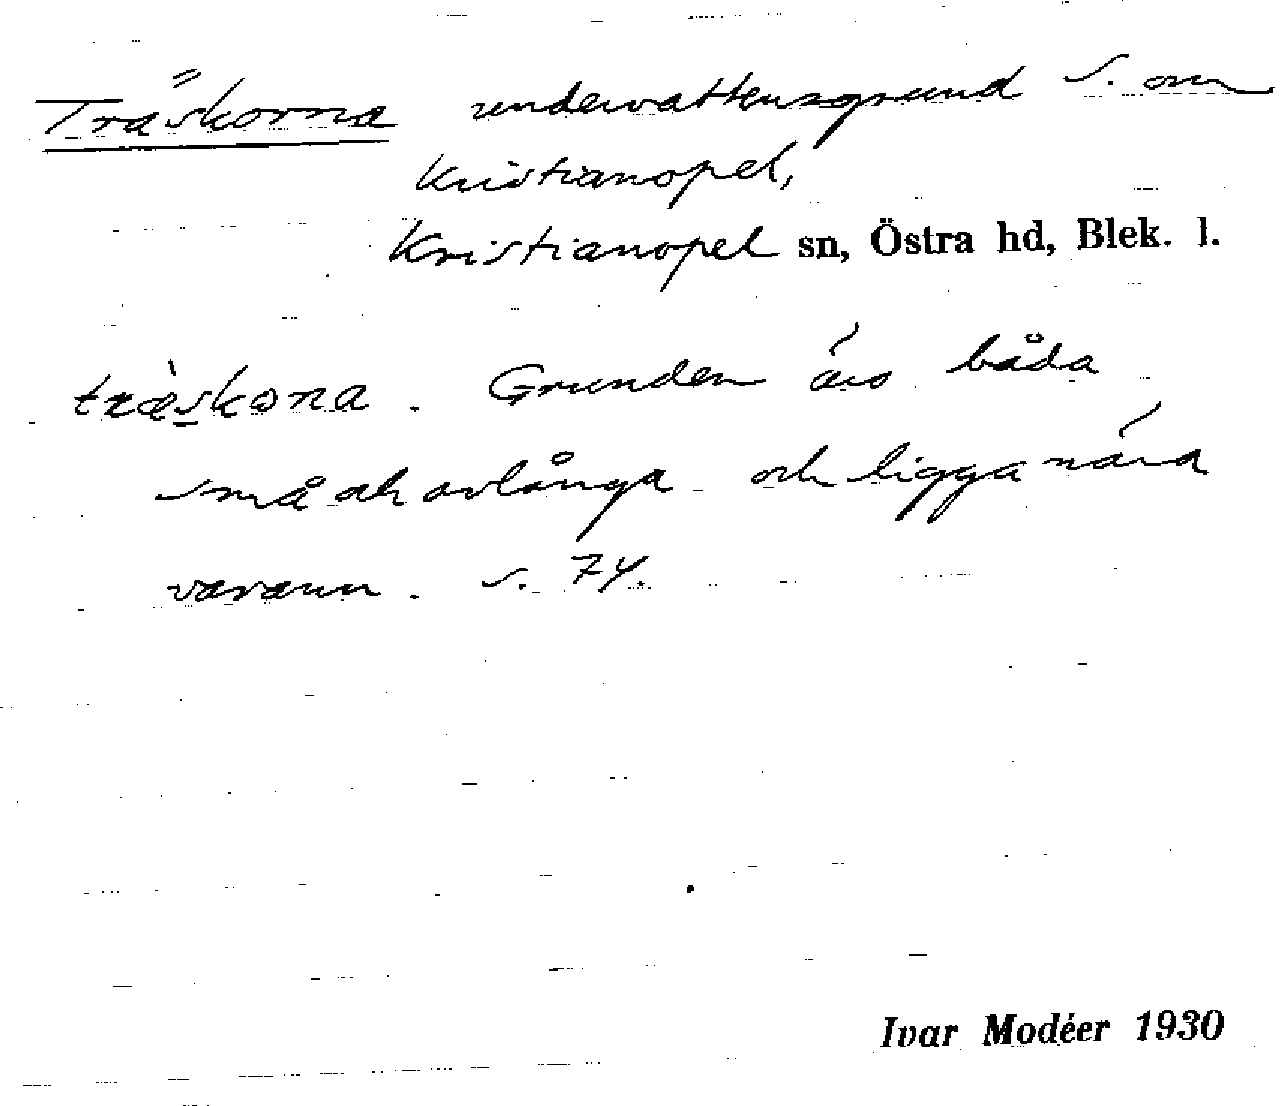 Träskorna undervattensgrund S. om
Kristianopel,
Kristianopel sn, Östra hd, Blek. l.
træ̀skona. Grunden äro båda
små och avlånga och ligga nära
varann. S. 74.
Ivar Modéer 1930